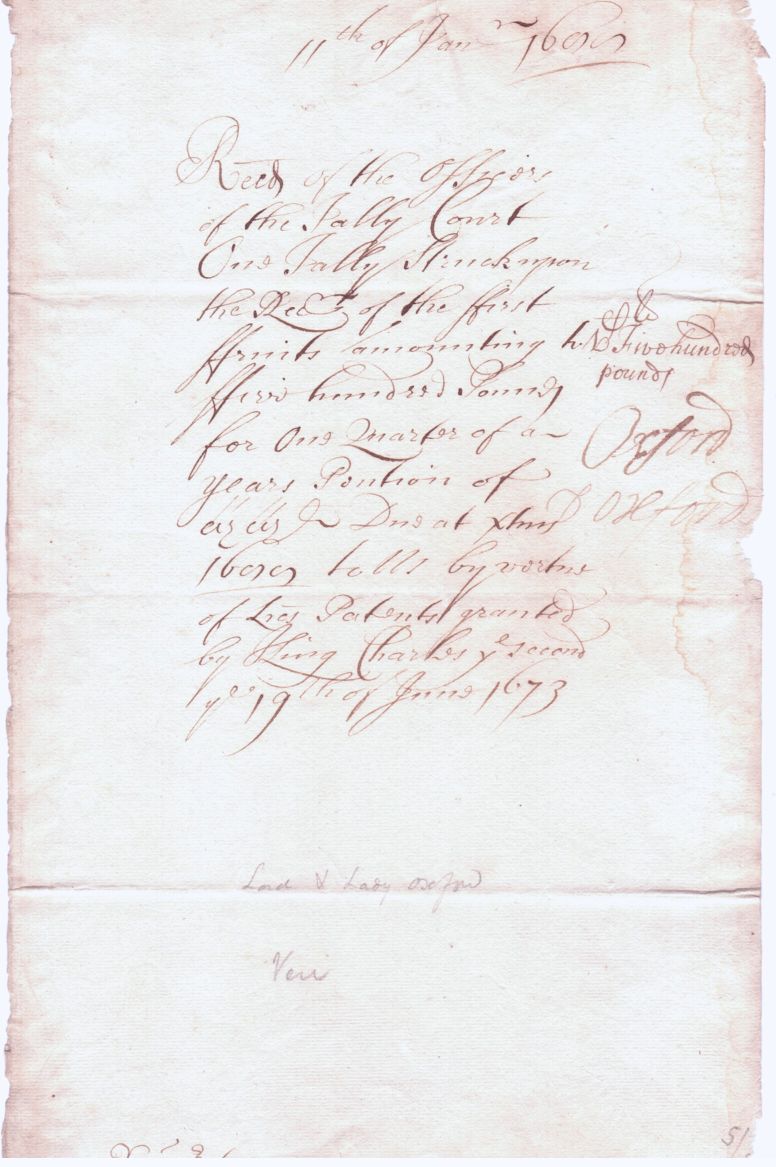 11th of Janr 1690
Recd of the Officers
of the Tally Court
One Tally Struck upon
the Rect of the ffirst
ffruits amounting to
ffive hundred Pounds
for One Quarter of a
years Pention of
Due at Xtmas
1690 tolls by vertue
of Lres Patents granted
by King Charles ye second
ye 19th of June 1673
Five hundred
pounds
Oxford
Oxford
Lord & Lady Oxford
Vere
51